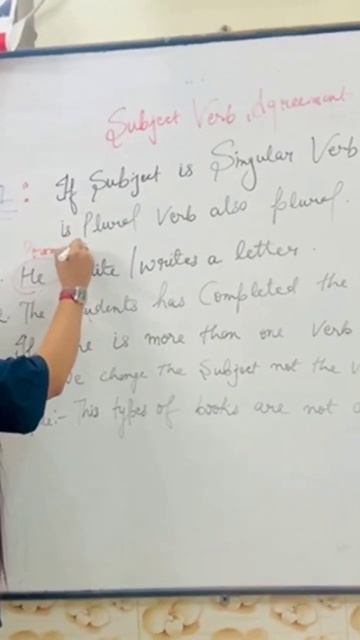 Subject Verb Agreement
If Subject is Singular Verb
is Plural Verb also plural.
He write / writes a letter.
The students has Completed the
is more than one Verb
change The Subject not the
:- This types of books are not